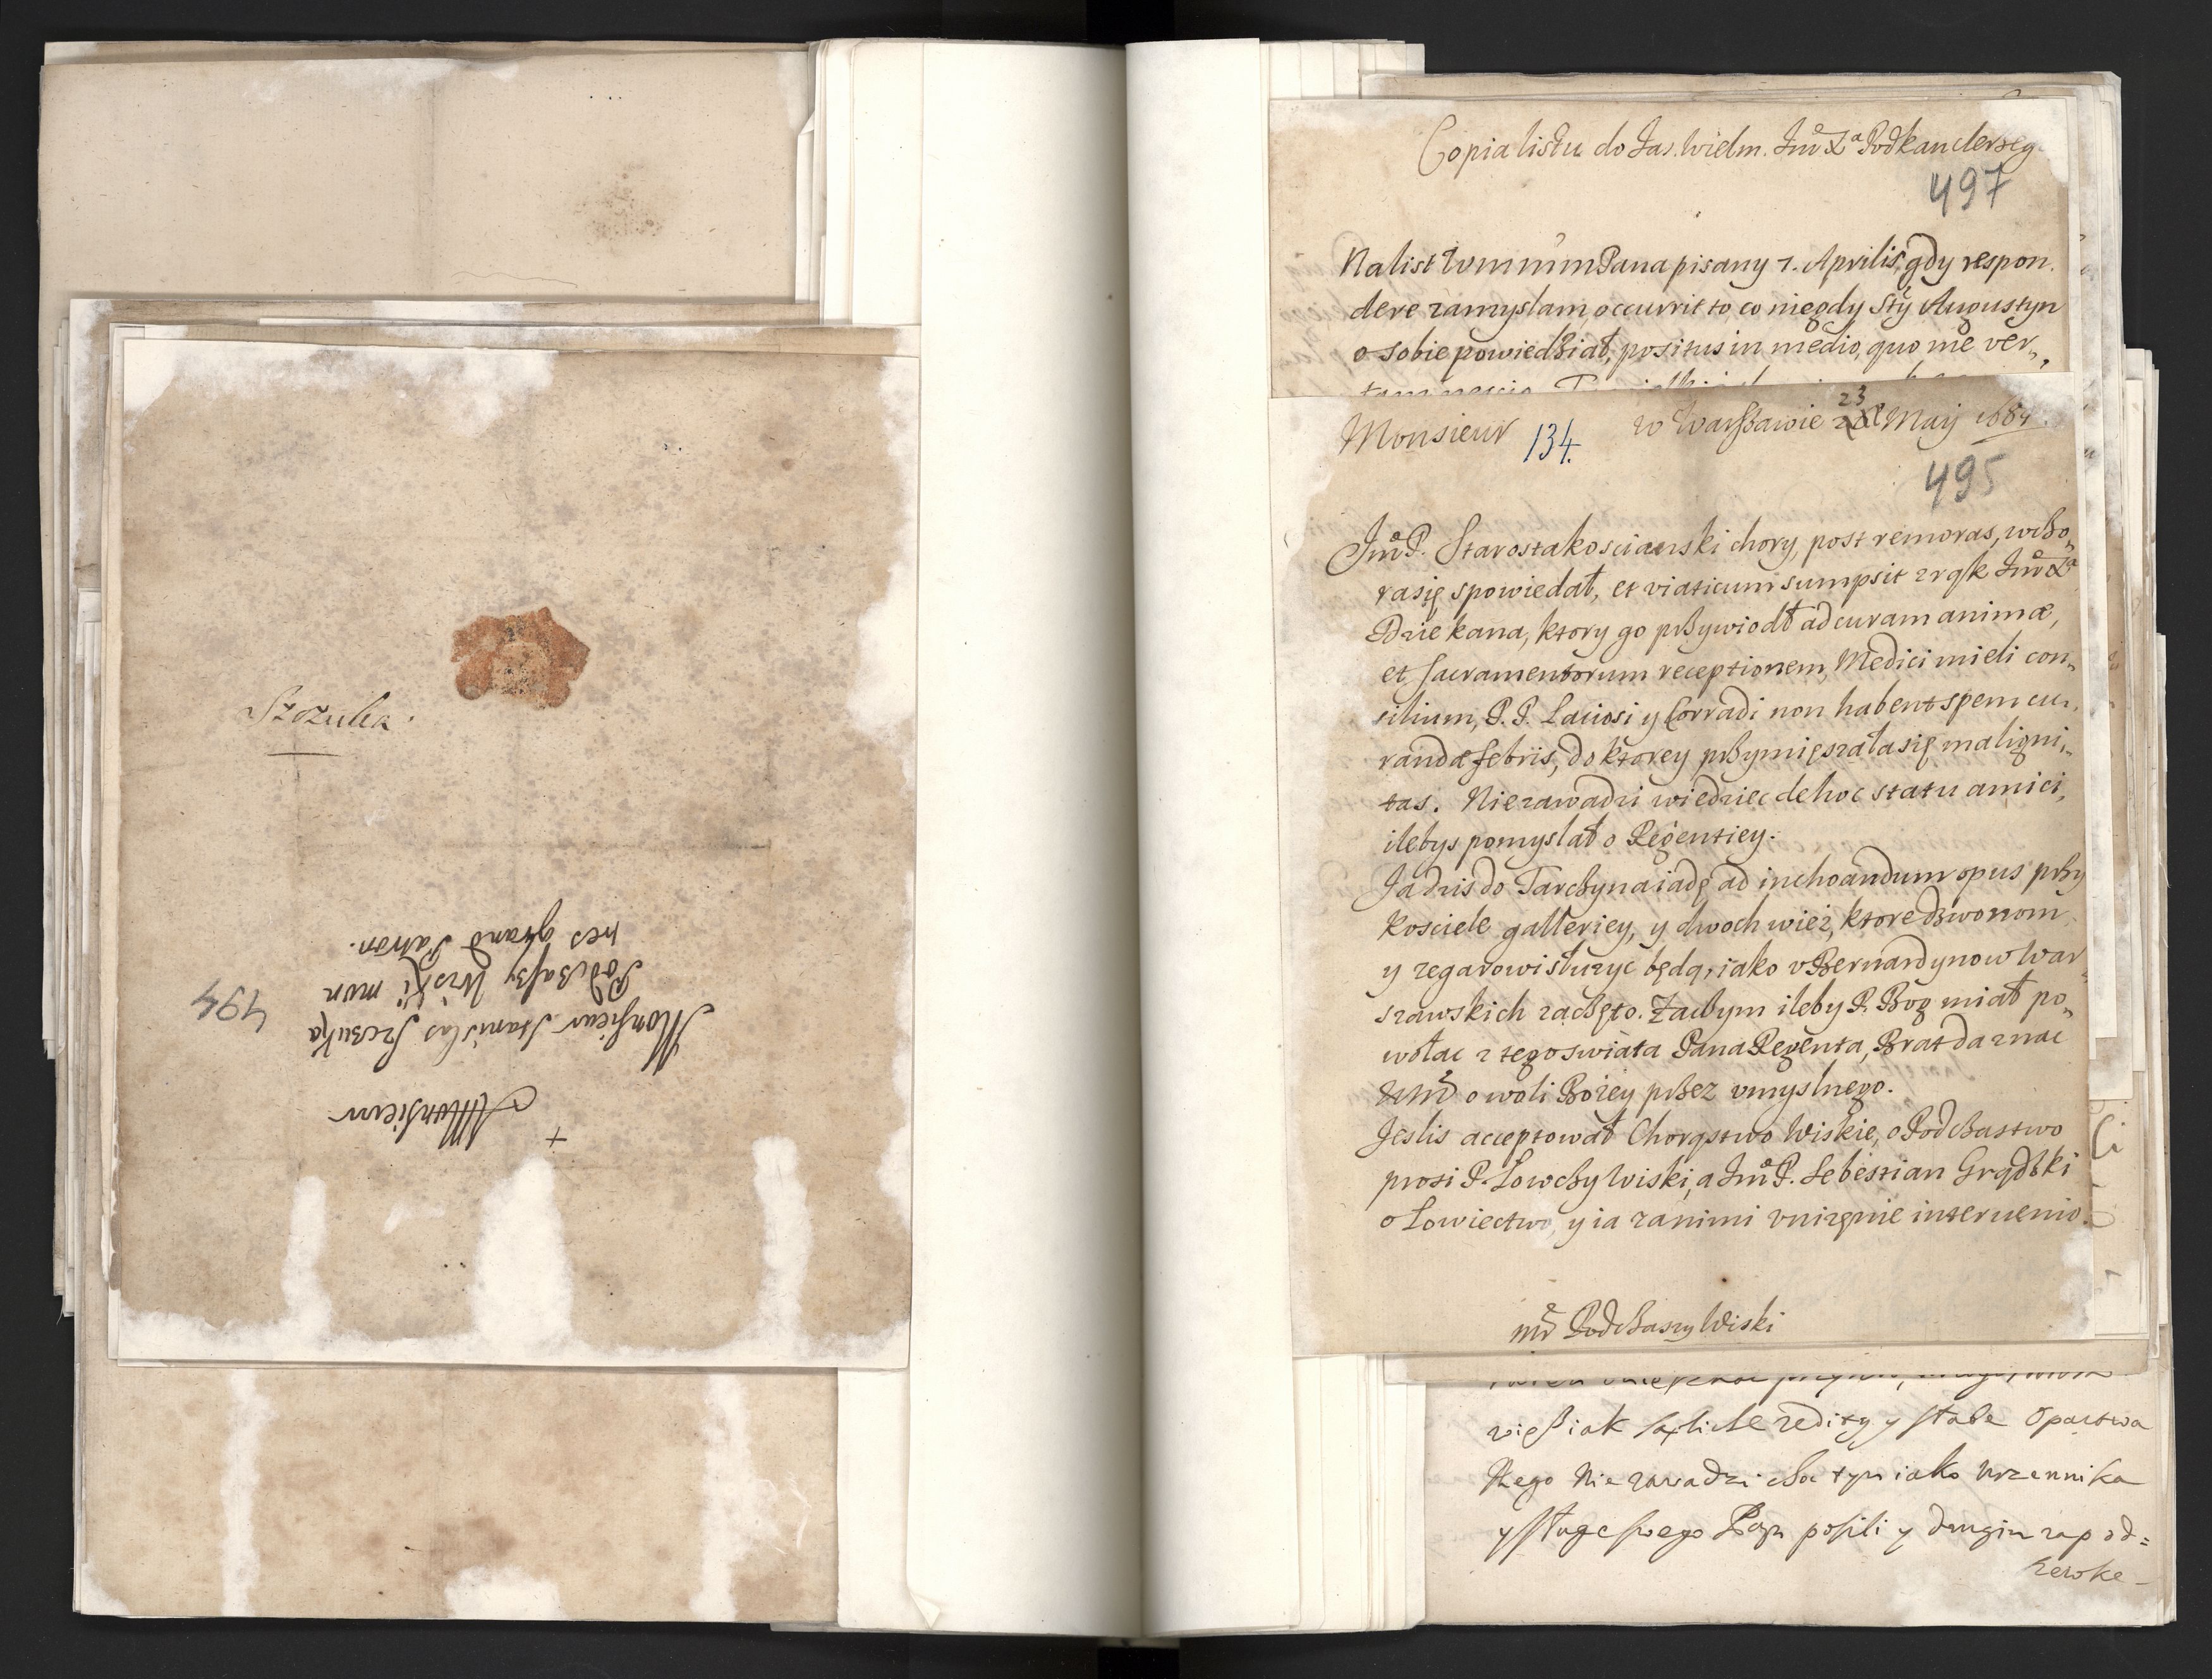 Szczuka.
494
+
Monsieur
Monsieur Stanislas Szczuka
Podczaszy Wizki mon
tres grand Patron.
Copia listu do Jas. Wielm. Jmº Xª Podkanclerzeg
497
Na list Wm mm Pana pisany 7. Aprilis, gdy respon.
dere zamyslam occurrit to co niegdy Sty Augustyn
o sobie powiedział, positus in medio, quo me ver,,
tam nescio
Monsieur 134. w Warszawie 23 Maij 1684.
495
Jmº P. Starosta koscianski chory, post remoras, wczo,,
ra się spowiedał, et viaticum sumpsit z rąk Jmº Xª
Dziekana, ktory go przywiodł ad curam animæ,
et sacramentorum receptionem, Medici mieli con,,
silium, P. P. Lauosi y Corradi non habent spem cu,,
randæ febris, do ktorey przymięszała się maligni,,
tas. Niezawadzi wiedziec de hoc statu amici,
ilebys pomyslał o Regentiey.
Ja dzis do Tarczyna iadę ad inchoandum opus przy
kosciele galleriey, y dwoch wież, ktore dzwonom
y zegarowi służyc będą, iako v Bernardynow War,,
szawskich zaczęto. Zaczym ileby P. Bog miał po,,
wołac z tego swiata Pana Regenta, Brat da znac
Wmº o woli Bożey przez vmyslnego.
Jeslis acceptował Chorąstwo Wiskie, o Podczastwo
prosi P. Łowczy Wiski, a Jmº P. Sebestian Grądzki
o Łowiectwo, y ia za nimi vniżenie interuenio.
mº Podczaszy Wiski
więß iak są liche zedity y słabe Opactwa
tego Nie zawadzi choc tym iako Urzennika
y sługe swego Pan posili y drugim zap od=
rewke-